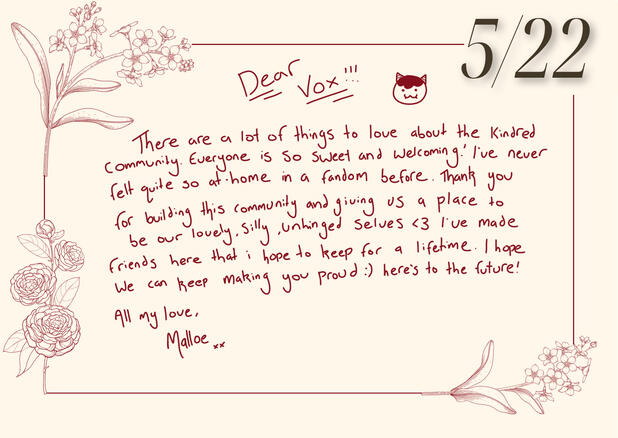 5/22
Dear Vox!!!
There are a lot of things to love about the Kindred
Community. Everyone is so sweet and welcoming! I've never
felt quite so at-home in a fandom before. Thank you
for building this community and giving us a place to
be our lovely, silly, unhinged selves <3 I've made
friends here that i hope to keep for a lifetime. I hope
we can keep making you proud :) here's to the future!
All my love,
Malloe xx